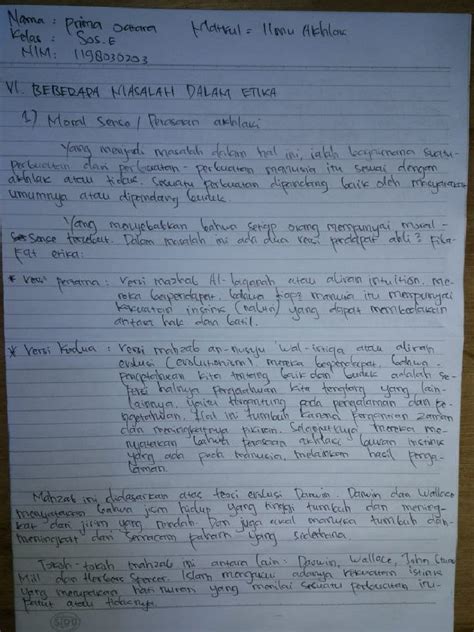 Nama : Prima Octara Matkul = Ilmu Akhlak
Kelas : Sos. E
NIM : 1198030203
VI. BEBERAPA MASALAH DALAM ETIKA
1.) Moral Sence / Perasaan akhlaki
Yang menjadi masalah dalam hal ini, ialah bagaimana suatu
perbuatan dari perbuatan - perbuatan manusia itu sesuai dengan
akhlak atau tidak. Sesuatu perbuatan dipandang baik oleh masyarakat
umumnya atau dipandang buruk.
Yang menyebabkan bahwa setiap orang mempunyai moral -
Sence tersebut. Dalam masalah ini ada dua versi pendapat ahli
etika :
* Versi pertama : versi mazhab atau aliran intuition. Me-
reka berpendapat, bahwa tiap2 manusia itu mempunyai
kekuatan instink (naluri) yang dapat membedakan
antara hak dan batil.
* Versi Kedua : versi mahzab an-nusyu wal-irtiqa atau aliran
evolusi (evolutionism) mereka berpendapat, bahwa
pengetahuan kita tentang baik dan buruk adalah se-
perti halnya pengetahuan kita tentang yang lain-
lainnya, yaitu tergantung pada pengalaman dan pe-
ngetahuan. Hal ini tumbuh karena pergantian zaman
dan meningkatnya pikiran. Selanjutnya mereka me-
nyatakan bahwa perasaan akhlaki bukan instink
yang ada pada manusia, melainkan hasil penga-
laman.
Mahzab ini didasarkan atas teori evolusi Darwin. Darwin dan Wallace
menyatakan bahwa jism hidup yang tinggi tumbuh dan mening-
kat dari jisim yang rendah. Dan juga awal manusia tumbuh dan
meningkat dari semacam paham yang sederhana.
Tokoh - tokoh mahzab ini antara lain : Darwin, Wallace, John Stuart
Mill dan Herbert Spencer. Islam mengakui adanya kekuatan instink
yang merupakan hati nurani yang menilai sesuatu perbuatan itu
patut atau tidaknya.
SIDU